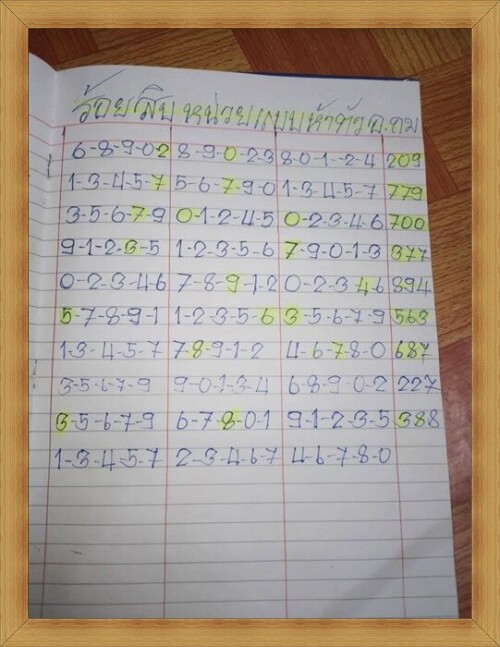 ร้อยสิบหน่วยแบบห้าตัว อ.ถม
6-8-9-0-2 8-9-0-2-3 8-0-1--2-4 209
1-3-4-5-7 5-6-7-9-0 1-3-4-5-7 779
3-5-6-7-9 0-1-2-4-5 0-2-3-4-6 700
9-1-2-3-5 1-2-3-5-6 7-9-0-1-3 377
0-2-3-4-6 7-8-9-1-2 0-2-3-4-6 894
5-7-8-9-1 1-2-3-5-6 3-5-6-7-9 563
1-3-4-5-7 7-8-9-1-2 4-6-7-8-0 687
3-5-6-7-9 9-0-1-3-4 6-8-9-0-2 227
3-5-6-7-9 6-7-8-0-1 9-1-2-3-5 388
1-3-4-5-7 2-3-4-6-7 4-6-7-8-0